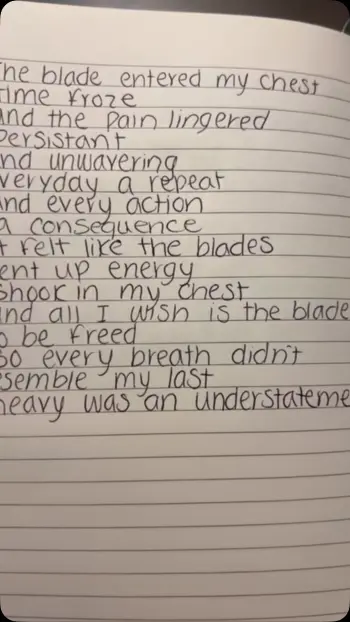 The blade entered my chest
time froze
and the pain lingered
persistant
nd unwavering
veryday a repeat
and every action
a consequence
t felt like the blades
ent up energy
shook in my chest
and all I wish is the blade
o be freed
so every breath didn't
semble my last
heavy was an understateme